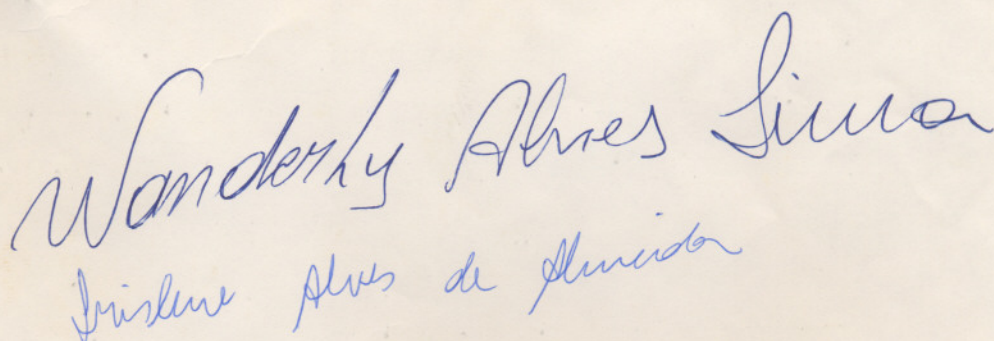 Wanderly Alves Lima
Irislene Alves de Almeida